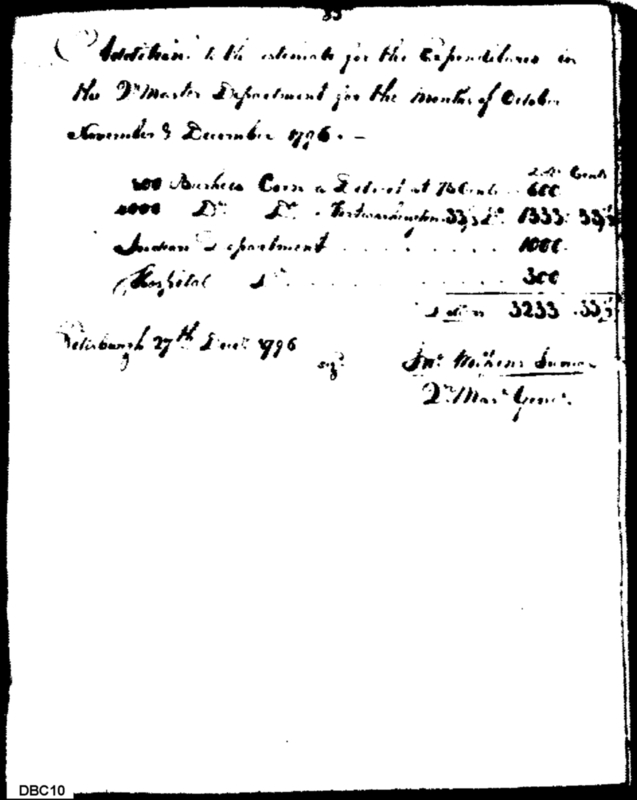 33
Addition to the estimate for the Expenditures in
the Qr Master Department for the months of October
November & December 1796. —
Dolls Cents
800 Bushels Corn a Detroit at 75 Cents .. 600
4000 Do Do . Fortwashington 33⅓ Do. 1333. 33⅓
Indian Department . . . . . . . 1000.
Hospital Do . . . . . . . . 300
Dollars 3233 .33⅓
27th Decr. 1796
sigd. Jno. Wilkins Junior
Qr. Masr. Genl.
DBC10